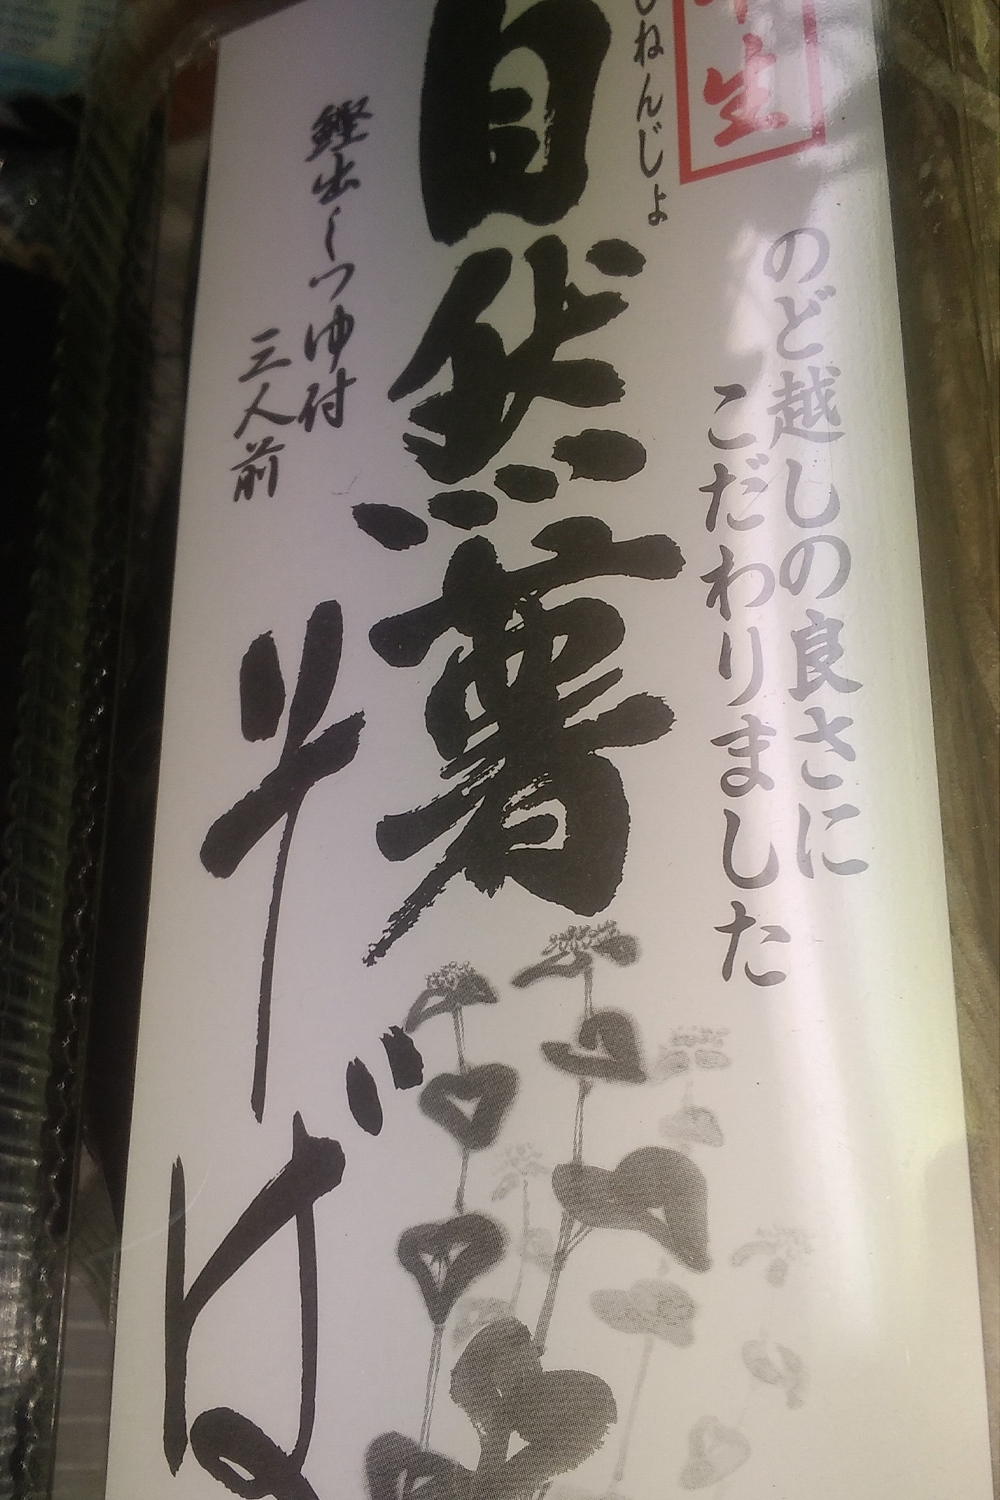 生
のど越しの良さに
こだわりました
ねんじょ
自然薯
そば
鰹出しつゆ付
三人前